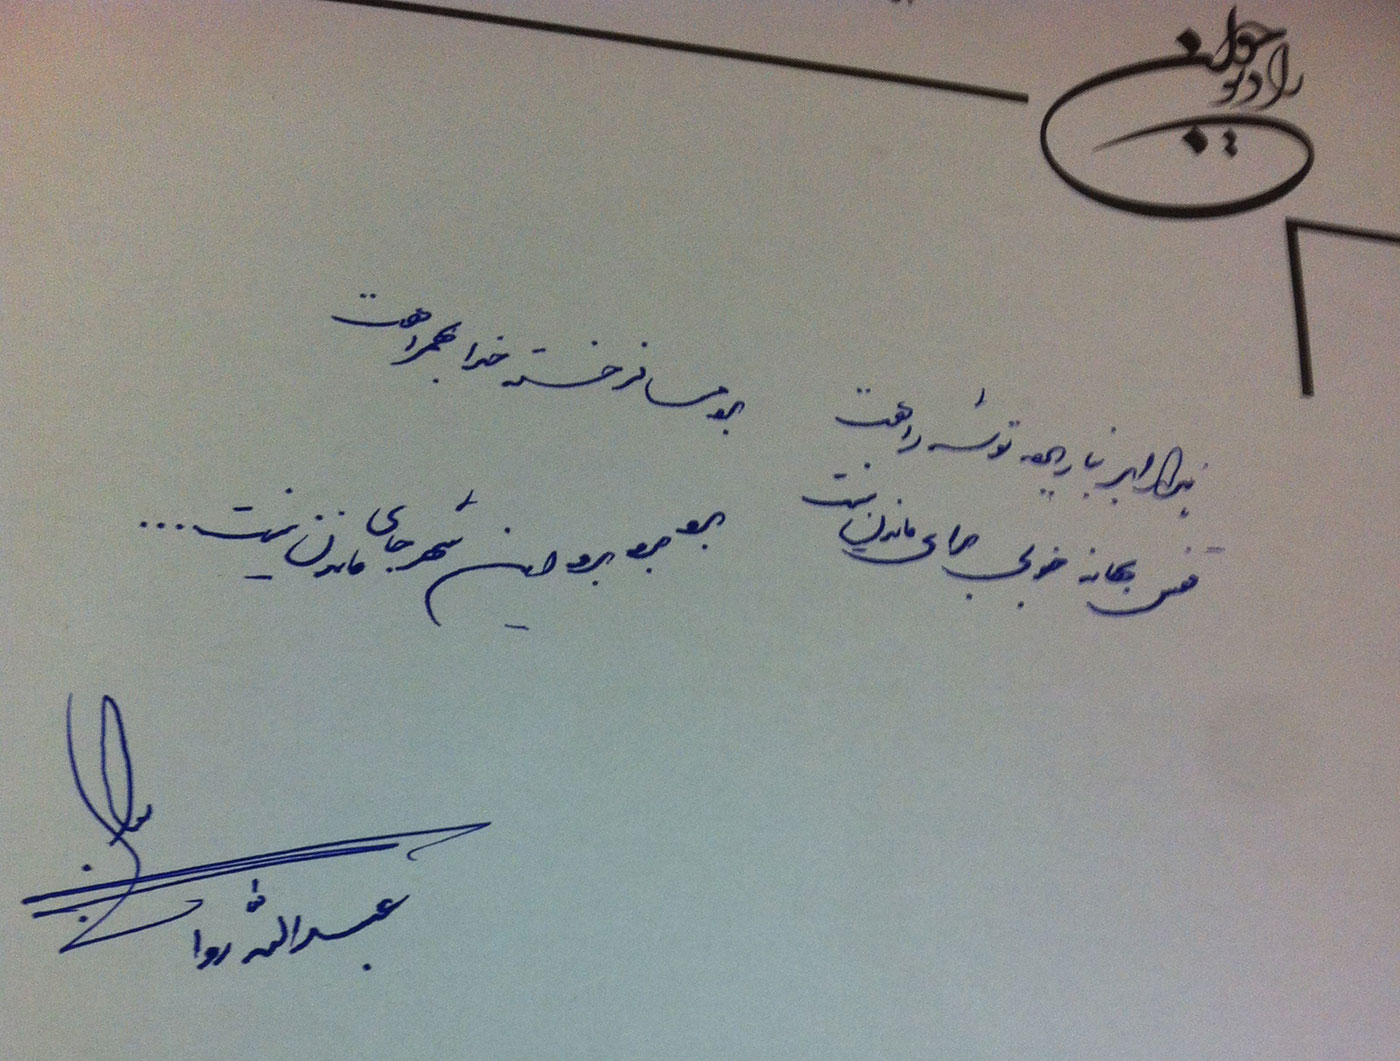 رادیو جوان
بذار ابر بباره که توشه راهت
برو مسافر خسته خدا همراهت
قفس بهانه خوبی برای ماندن نیست
برو برو برو این شهر جای ماندن نیست...
عبدالله روا